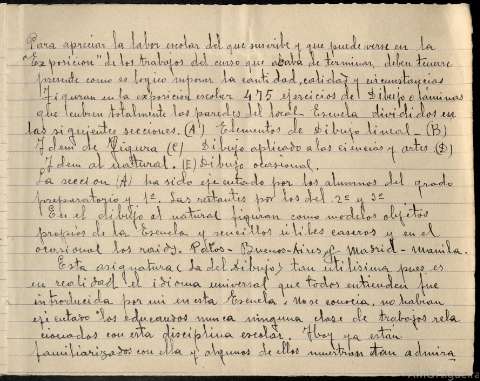 Para apreciar la labor escolar del que suscribe y que puede verse en la
"Exposición" de los trabajos del curso que acaba de terminar, deben tenerse
presente como es lógico suponer la cantidad, calidad y circunstancias
Figuran en la exposición escolar 475 ejercicios de Dibujo o láminas
que cubren totalmente las paredes del local-Escuela divididos en
las siguientes secciones. (A) Elementos de Dibujo lineal - (B)
Idem de Figura (C) Dibujo aplicado a las ciencias y artes (D)
Idem al natural. (E) Dibujo ocasional.
La sección (A) ha sido ejecutada por los alumnos del grado
preparatorio y 1º. Las restantes por los del 2º y 3º
En el dibujo al natural figuran como modelos objetos
propios de la Escuela y sencillos útiles caseros y en el
ocasional los raids. Palos - Buenos-Aires y Madrid - Manila.
Esta asignatura (La del Dibujo) tan utilísima pues es
en realidad el idioma universal que todos entienden fue
introducida por mi en esta Escuela. No se conocía, no habían
ejecutado los educandos nunca ninguna clase de trabajos rela
cionados con esta disciplina escolar. Hoy ya están
familiarizados con ella y algunos de ellos muestran tan admira